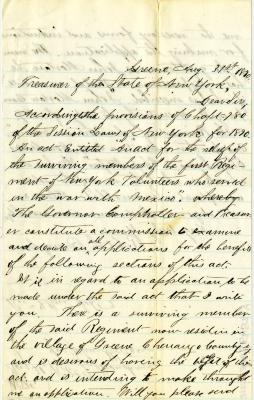 Greene, Aug. 31st, 18
Treasurer of the State of New York,
Dear Sir,
According the provisions of Chapt 780
of the Session Laws of New York for 18
An act Entitled "An act for the relief of
the surviving members of the first Regi-
ment of New York Volunteers who served
in the war with Mexico", whereby
The Governor Comptroller and Treasur
er constitute a commission to examine
and decide on all applications for the benefits
of the following sections of this act.
It is in regard to an application to be
made under the said act that I write
you. There is a surviving member
of the said Regiment now resides in
the village of Greene Chenango County
and is desirous of having the benefit of this
act and is intending to make through
me an application. Will you please send